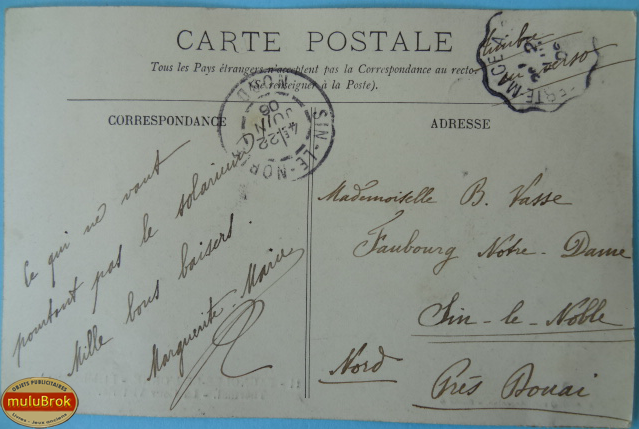 CARTE POSTALE
Tous les Pays étrangers n'acceptent pas la Correspondance au recto
se renseigner à la Poste).
timbre
au verso
CORRESPONDANCE
ADRESSE
SIN-LE-NOBLE
NORD
4E/22
JUIN
06
Ce qui ne vaut
pourtant pas le solarium
Mille bons baisers.
Marguerite-Marie
Mademoiselle B. Vasse
Faubourg Notre-Dame
Sin-le-Noble
Nord
Près Douai
OBJETS PUBLICITAIRES
muluBrok